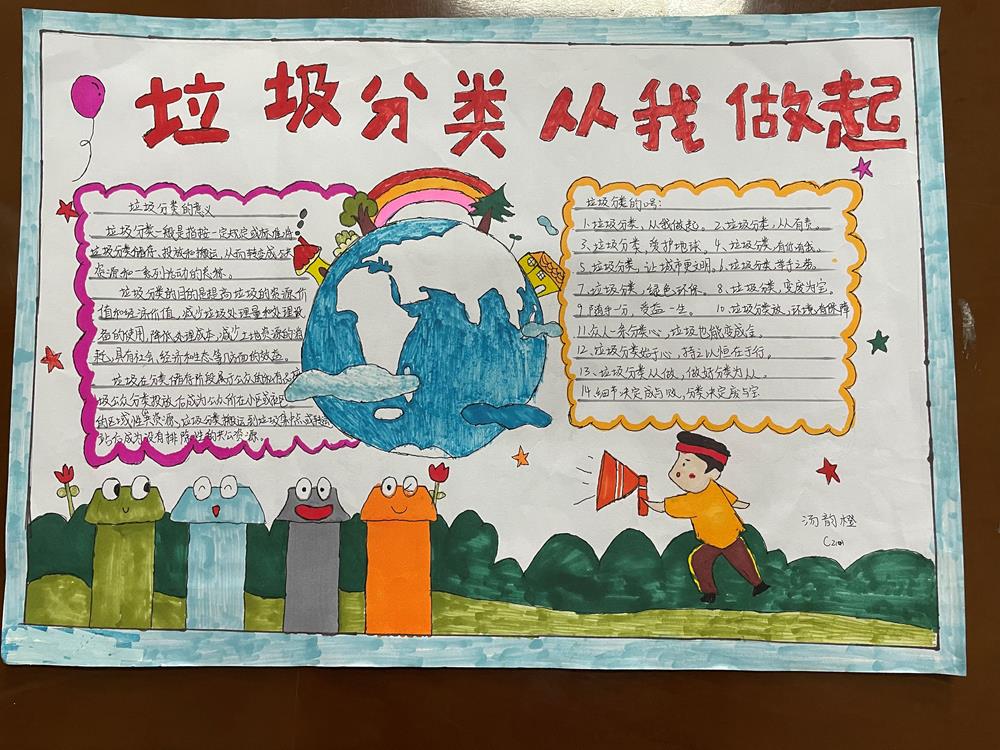 垃圾分类 从我做起
垃圾分类的意义
垃圾分类一般是指按一定规定或标准将
垃圾分类储存、投放和搬运，从而转变成公共
资源的一系列活动的总称。
垃圾分类的目的是提高垃圾的资源价
值和经济价值，减少垃圾处理量和处理设
备的使用，降低处理成本，减少土地资源的消
耗，具有社会、经济和生态等几方面的效益。
垃圾在分类储存阶段属于公众的私有品，垃
圾公众分类投放后成为公众所在小区或社区
的区域性类资源，垃圾分类搬运到垃圾集中点或转运
站后成为没有排除性的公共资源。
垃圾分类的口号：
1.垃圾分类，从我做起。2.垃圾分类，人有责。
3.垃圾分类，爱护地球。4.垃圾分类，有你有我。
5.垃圾分类，让城市更文明。6.垃圾分类，举手之劳。
7.垃圾分类，绿色环保。8.垃圾分类，变废为宝。
9.随手一分，受益一生。10.垃圾分类放，环境有保障
11.众人一条分类心，垃圾也能变成金。
12.垃圾分类始于心，持之以恒在于行。
13.垃圾分类从做，做好分类为从。
14.细节决定成与败，分类决定废与宝
汤韵橙